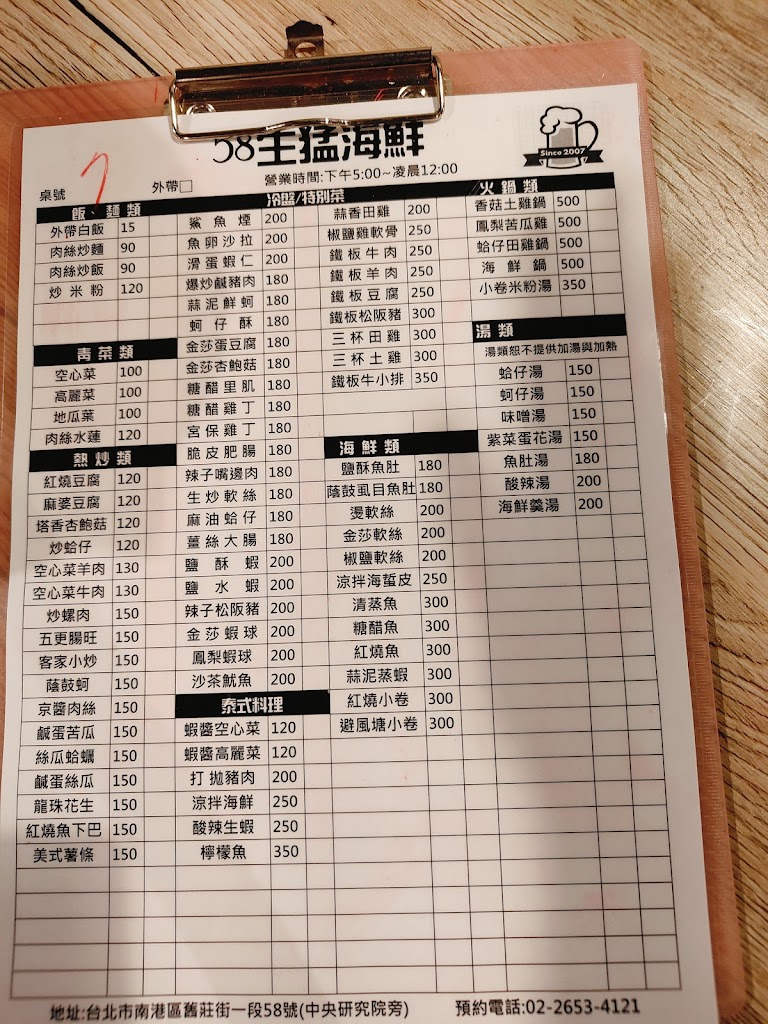 58生猛海鮮
Since 2007
營業時間:下午5:00~凌晨12:00
桌號 7
外帶□
飯、麵類
外帶白飯 15
肉絲炒麵 90
肉絲炒飯 90
炒米粉 120
青菜類
空心菜 100
高麗菜 100
地瓜葉 100
肉絲水蓮 120
熱炒類
紅燒豆腐 120
麻婆豆腐 120
塔香杏鮑菇 120
炒蛤仔 120
空心菜羊肉 130
空心菜牛肉 130
炒螺肉 150
五更腸旺 150
客家小炒 150
蔭鼓蚵 150
京醬肉絲 150
鹹蛋苦瓜 150
絲瓜蛤蠣 150
鹹蛋絲瓜 150
龍珠花生 150
紅燒魚下巴 150
美式薯條 150
冷盤/特別菜
鯊魚煙 200
魚卵沙拉 200
滑蛋蝦仁 200
爆炒鹹豬肉 180
蒜泥鮮蚵 180
蚵仔酥 180
金莎蛋豆腐 180
金莎杏鮑菇 180
糖醋里肌 180
糖醋雞丁 180
宮保雞丁 180
脆皮肥腸 180
辣子嘴邊肉 180
生炒軟絲 180
麻油蛤仔 180
薑絲大腸 180
鹽酥蝦 200
鹽水蝦 200
辣子松阪豬 200
金莎蝦球 200
鳳梨蝦球 200
沙茶魷魚 200
泰式料理
蝦醬空心菜 120
蝦醬高麗菜 120
打拋豬肉 200
涼拌海鮮 250
酸辣生蝦 250
檸檬魚 350
蒜香田雞 200
椒鹽雞軟骨 250
鐵板牛肉 250
鐵板羊肉 250
鐵板豆腐 250
鐵板松阪豬 300
三杯田雞 300
三杯土雞 300
鐵板牛小排 350
海鮮類
鹽酥魚肚 180
蔭鼓虱目魚肚 180
燙軟絲 200
金莎軟絲 200
椒鹽軟絲 200
涼拌海蜇皮 250
清蒸魚 300
糖醋魚 300
紅燒魚 300
蒜泥蒸蝦 300
紅燒小卷 300
避風塘小卷 300
火鍋類
香菇土雞鍋 500
鳳梨苦瓜雞 500
蛤仔田雞鍋 500
海鮮鍋 500
小卷米粉湯 350
湯類
湯類恕不提供加湯與加熱
蛤仔湯 150
蚵仔湯 150
味噌湯 150
紫菜蛋花湯 150
魚肚湯 180
酸辣湯 200
海鮮羹湯 200
地址:台北市南港區舊莊街一段58號(中央研究院旁)
預約電話:02-2653-4121